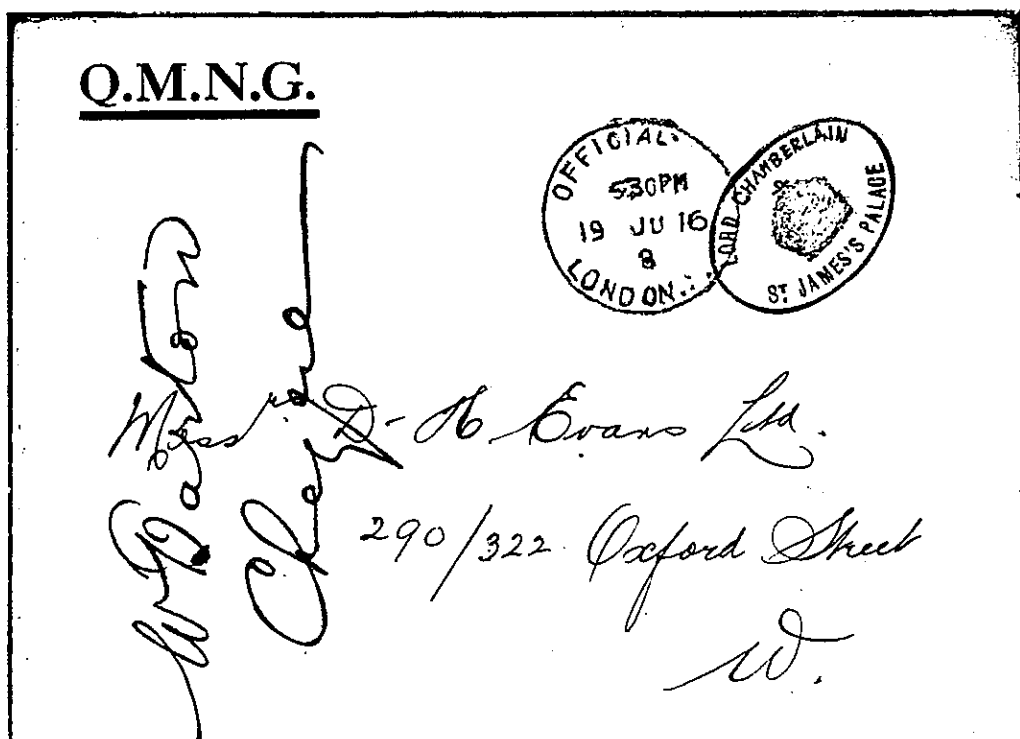 Q.M.N.G.
OFFICIAL.
5.30PM
19 JU 16
8
LONDON.
LORD CHAMBERLAIN
ST JAMES'S PALACE
Messrs D. H Evans Ltd.
290/322 Oxford Street
W.